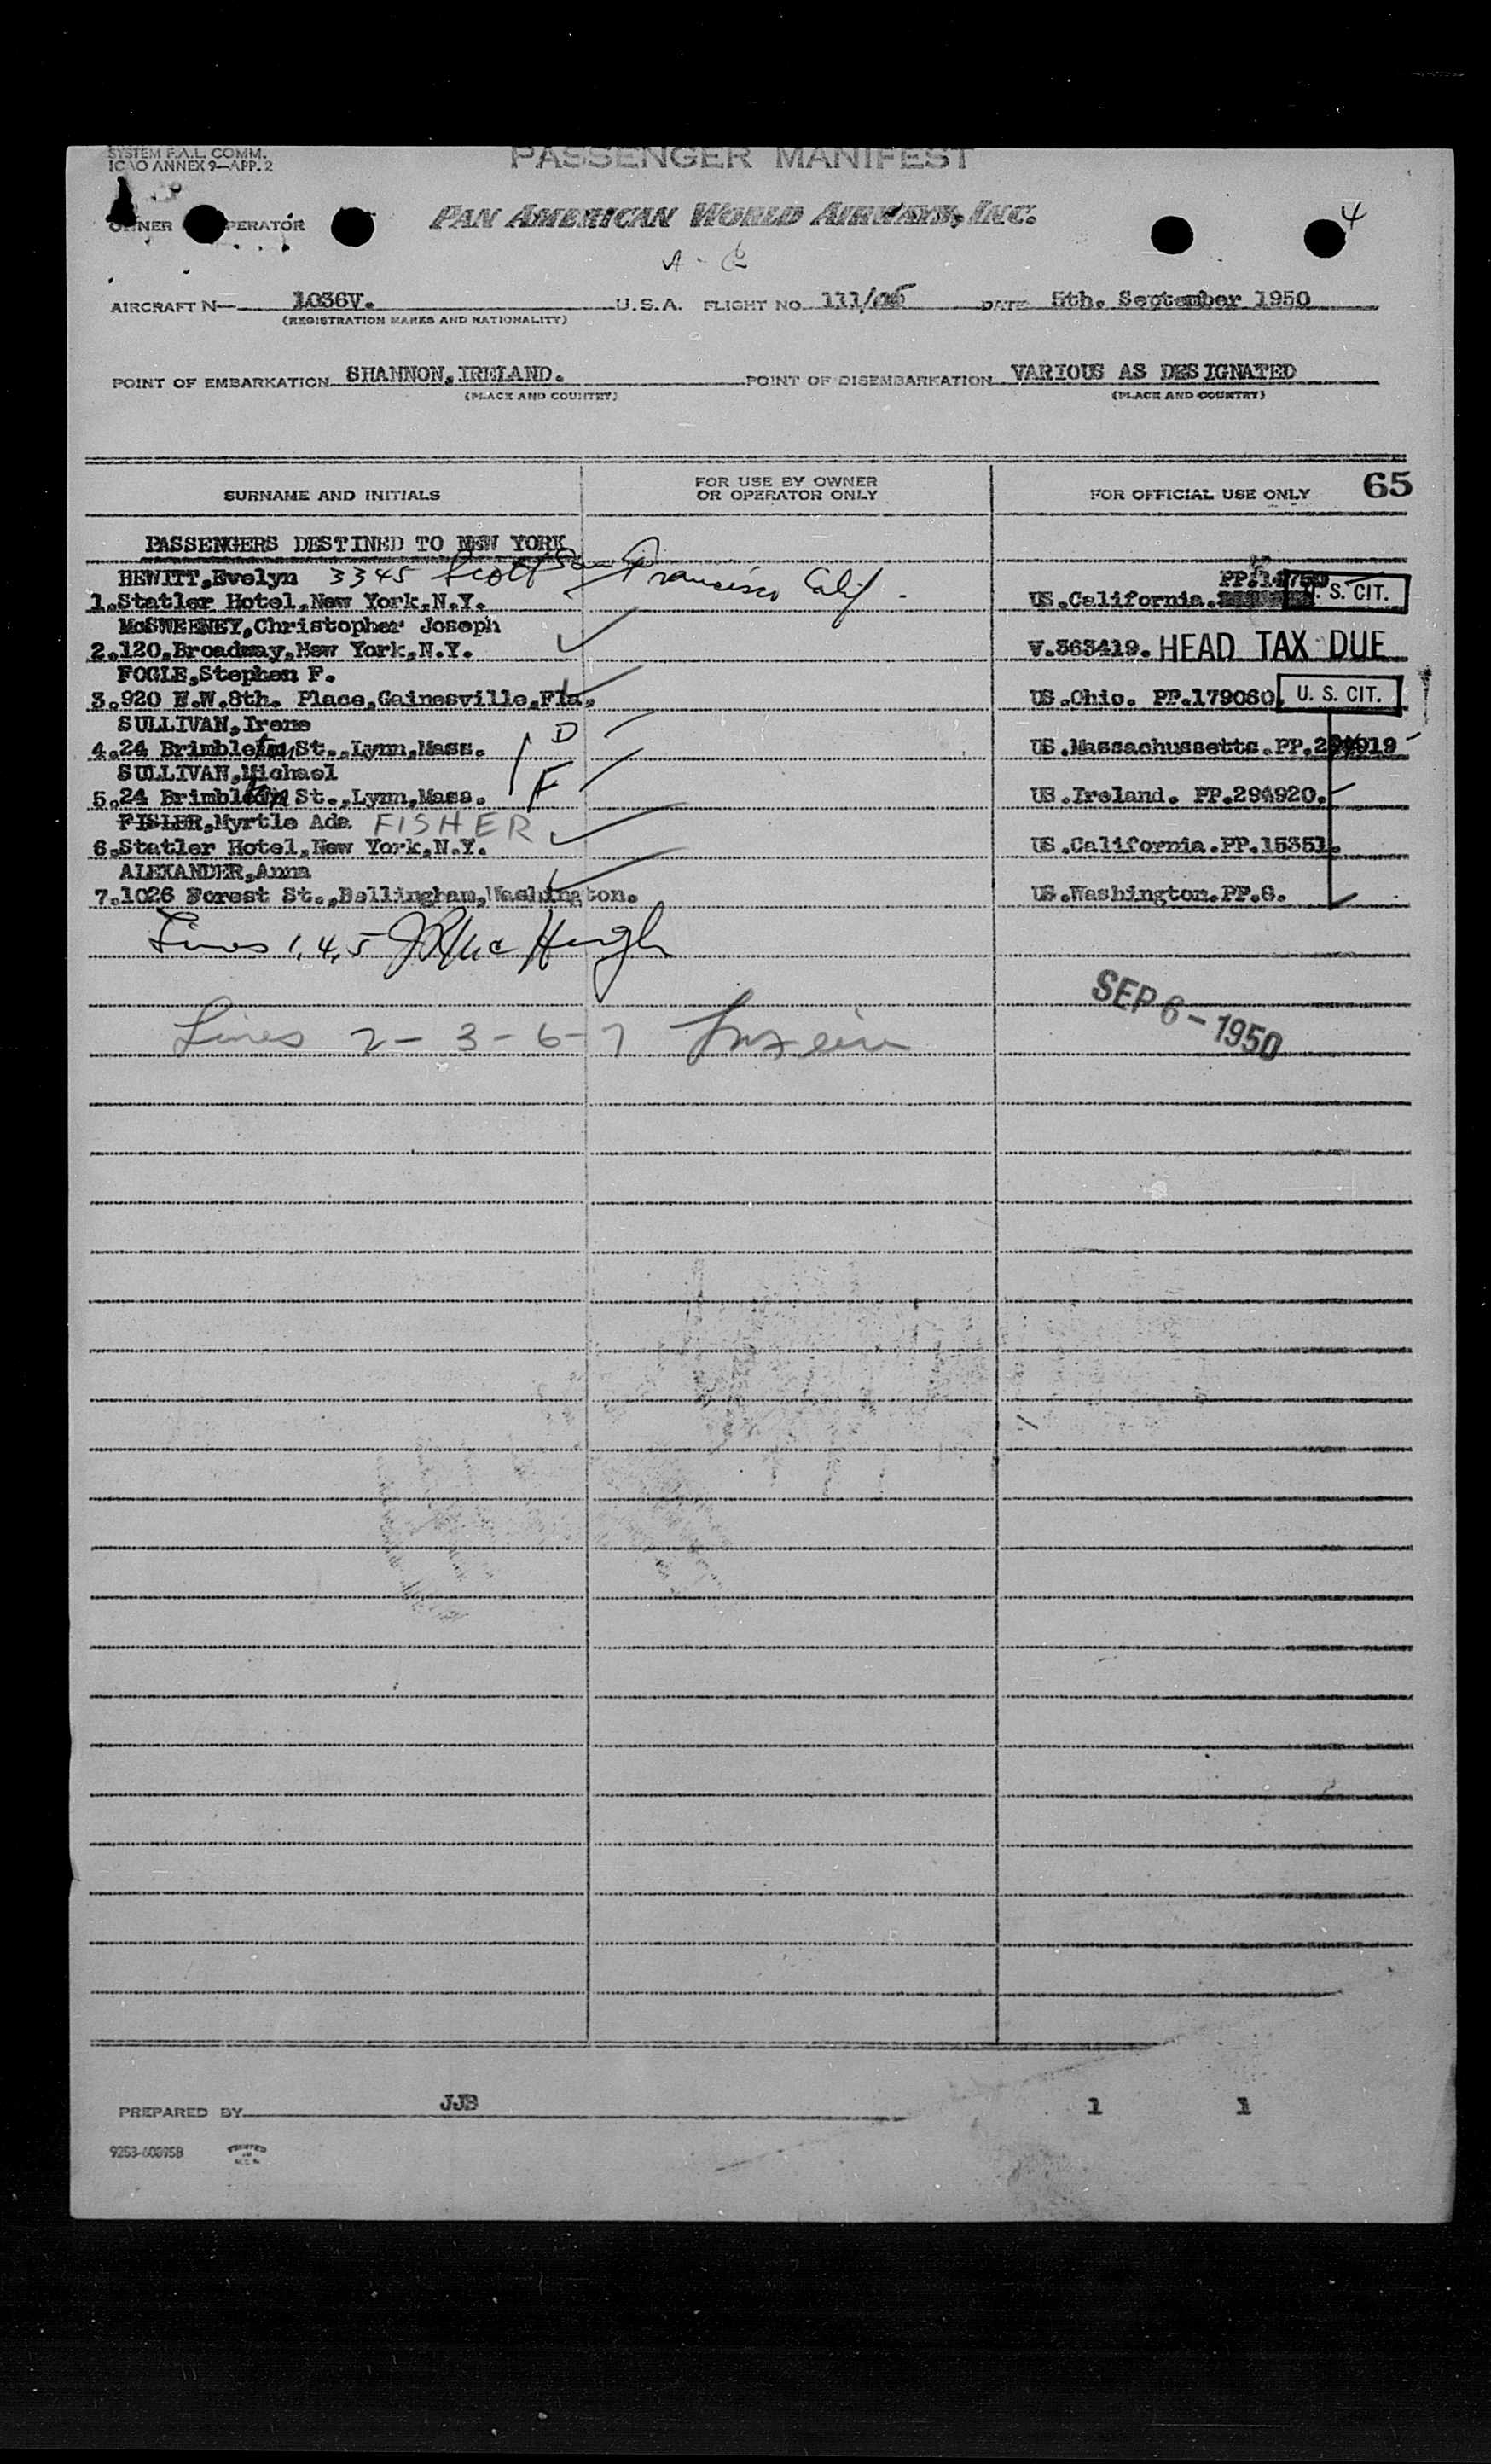 SYSTEM F.A.L. COMM.
ICAO ANNEX 9—APP. 2
PASSENGER MANIFEST
OWNER OPERATOR PAN AMERICAN WORLD AIRWAYS, INC. 4
AIRCRAFT N— 1036V. U.S.A. FLIGHT NO. 111/05 DATE 5th. September 1950
(REGISTRATION MARKS AND NATIONALITY)
POINT OF EMBARKATION SHANNON, IRELAND. POINT OF DISEMBARKATION VARIOUS AS DESIGNATED
(PLACE AND COUNTRY) (PLACE AND COUNTRY)
SURNAME AND INITIALS FOR USE BY OWNER OR OPERATOR ONLY FOR OFFICIAL USE ONLY 65
PASSENGERS DESTINED TO NEW YORK
HEWITT, Evelyn 3345 Scott San Francisco Calif.
1. Statler Hotel, New York, N.Y. US. California. U. S. CIT.
McSWEENEY, Christopher Joseph
2. 120, Broadway, New York, N.Y. V.363419. HEAD TAX DUE
FOGLE, Stephen F.
3. 920 N.W. 8th. Place, Gainesville, Fla. US. Ohio. PP. 179060. U. S. CIT.
SULLIVAN, Irene D
4. 24 Brimble St., Lynn, Mass. US. Massachussetts. PP.
SULLIVAN, Michael F
5. 24 Brimble St., Lynn, Mass. US. Ireland. PP. 294920.
FISLER, Myrtle Ada FISHER
6. Statler Hotel, New York, N.Y. US. California. PP. 15351.
ALEXANDER, Anna
7. 1026 Forest St., Bellingham, Washington. US. Washington. PP. 8.
Lines 1, 4, 5 J R McHugh
Lines 2 - 3 - 6 - 7
SEP 6 - 1950
PREPARED BY JJB 1 1
9253-608958
PRINTED
IN
U.S.A.